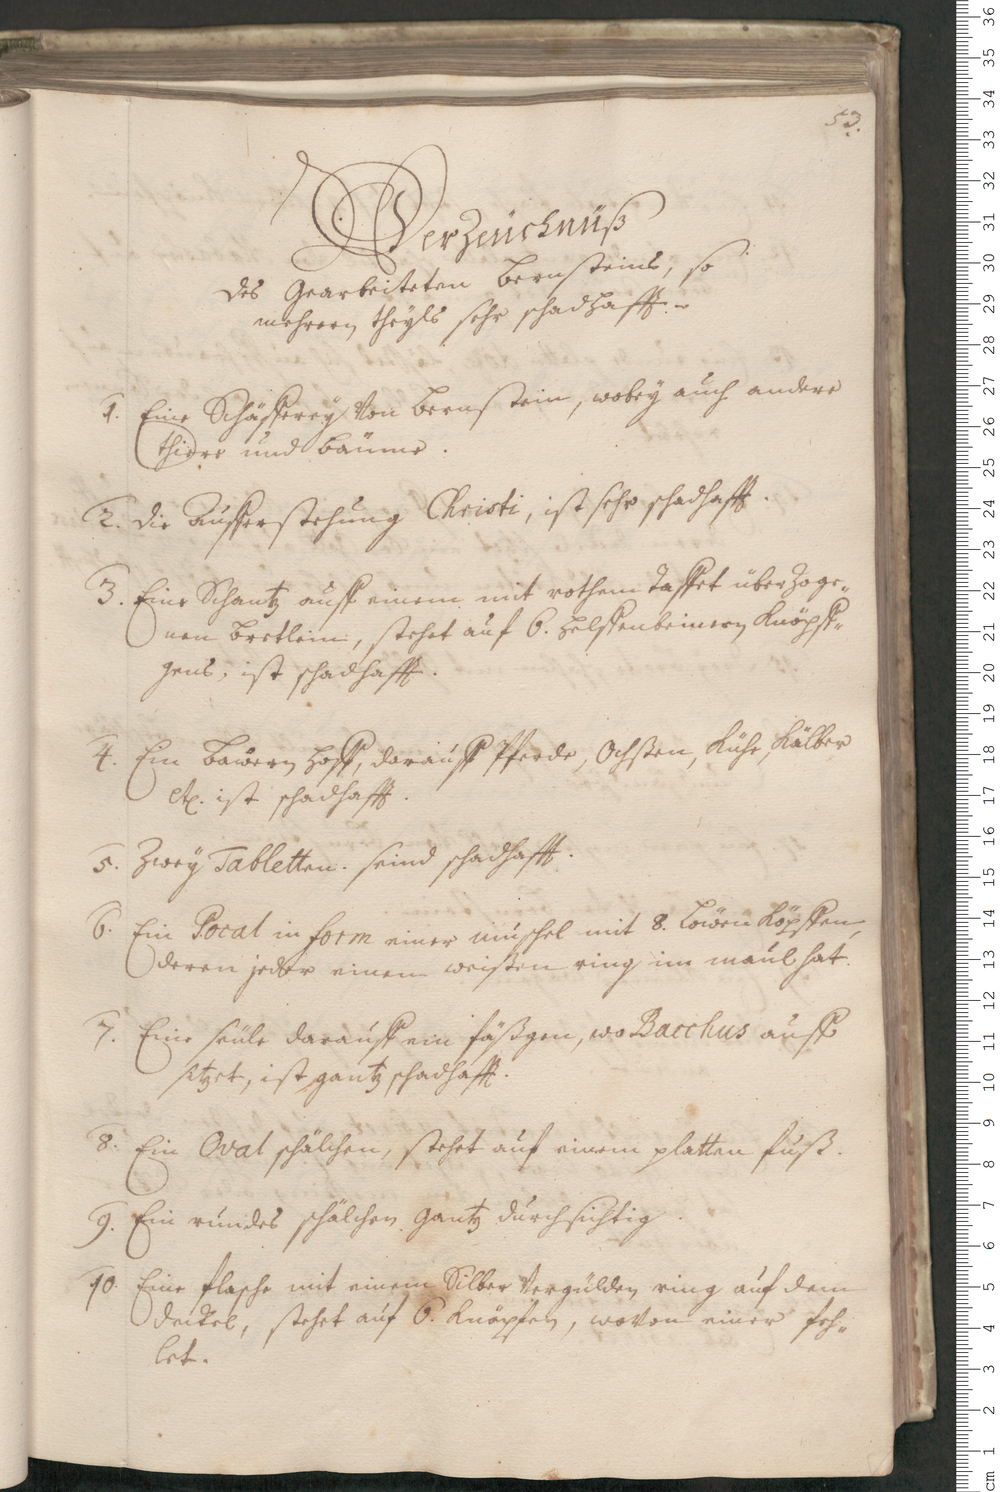 53.
Verzeüchnüß
des Gearbeiteten Bernsteins, so
mehrern theÿls sehr schadhafft.
1. Eine Schäfferey Von Bernstein, wobey auch andere
thiere und bäume.
2. die Aufferstehung Christi, ist sehr schadhafft.
3. Eine Schantz auff einem mit rothem Taffet überzoge-
nen bretlein, stehet auf 6. helffenbeinern Knöpff-
gens, ist schadhafft.
4. Ein Bawern hoff, darauff Pferde, Ochßen, Kühe, Kälber
etc. ist schadhafft.
5. Zweÿ Tabletten. seind schadhafft.
6. Ein Pocal in form einer muschel mit 8. Löwen Köpffen,
deren jeder einen weißen ring im maul hat.
7. Eine seüle darauff ein fäßgen, wo Bacchus auff
sitzet, ist gantz schadhafft.
8. Ein Oval schälchen, stehet auf einem platten fuß.
9. Ein rundes schälchen gantz durchsichtig.
10. Eine flasche mit einem Silber Vergülden ring auf dem
deckel, stehet auf 6. Knöpfen, woVon einer feh-
let.